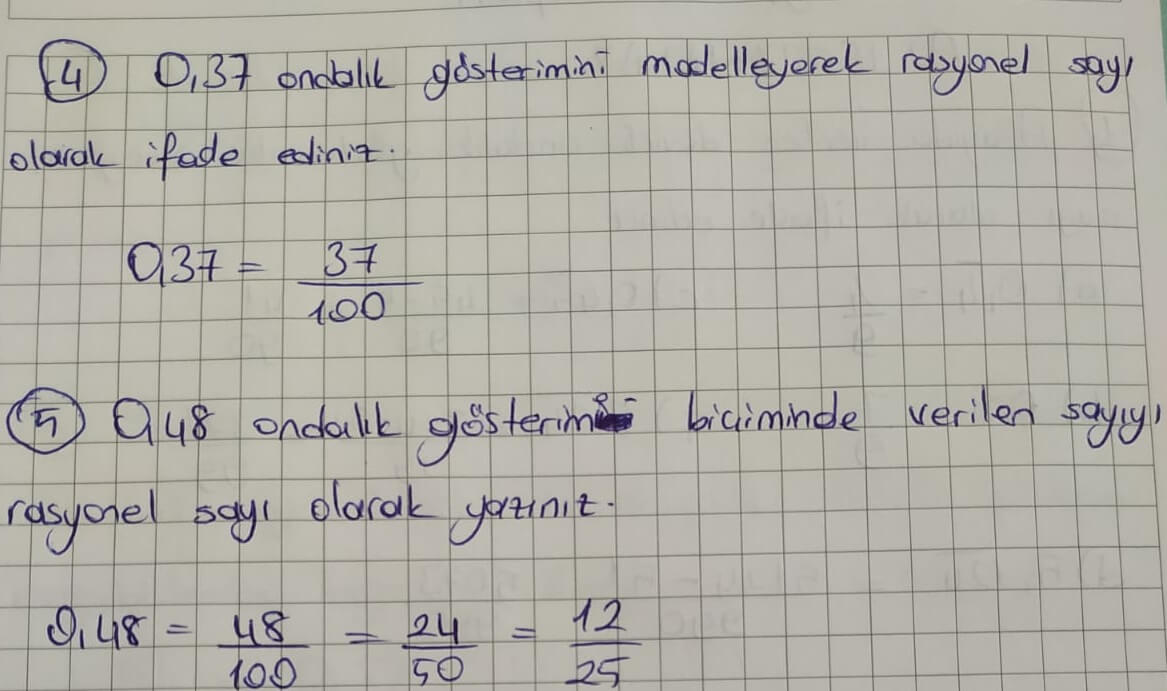 4 0,37 ondalık gösterimini modelleyerek rasyonel sayı
olarak ifade ediniz.
0,37 = 37/100
5 0,48 ondalık gösterim biçiminde verilen sayıyı
rasyonel sayı olarak yazınız.
0,48 = 48/100 = 24/50 = 12/25